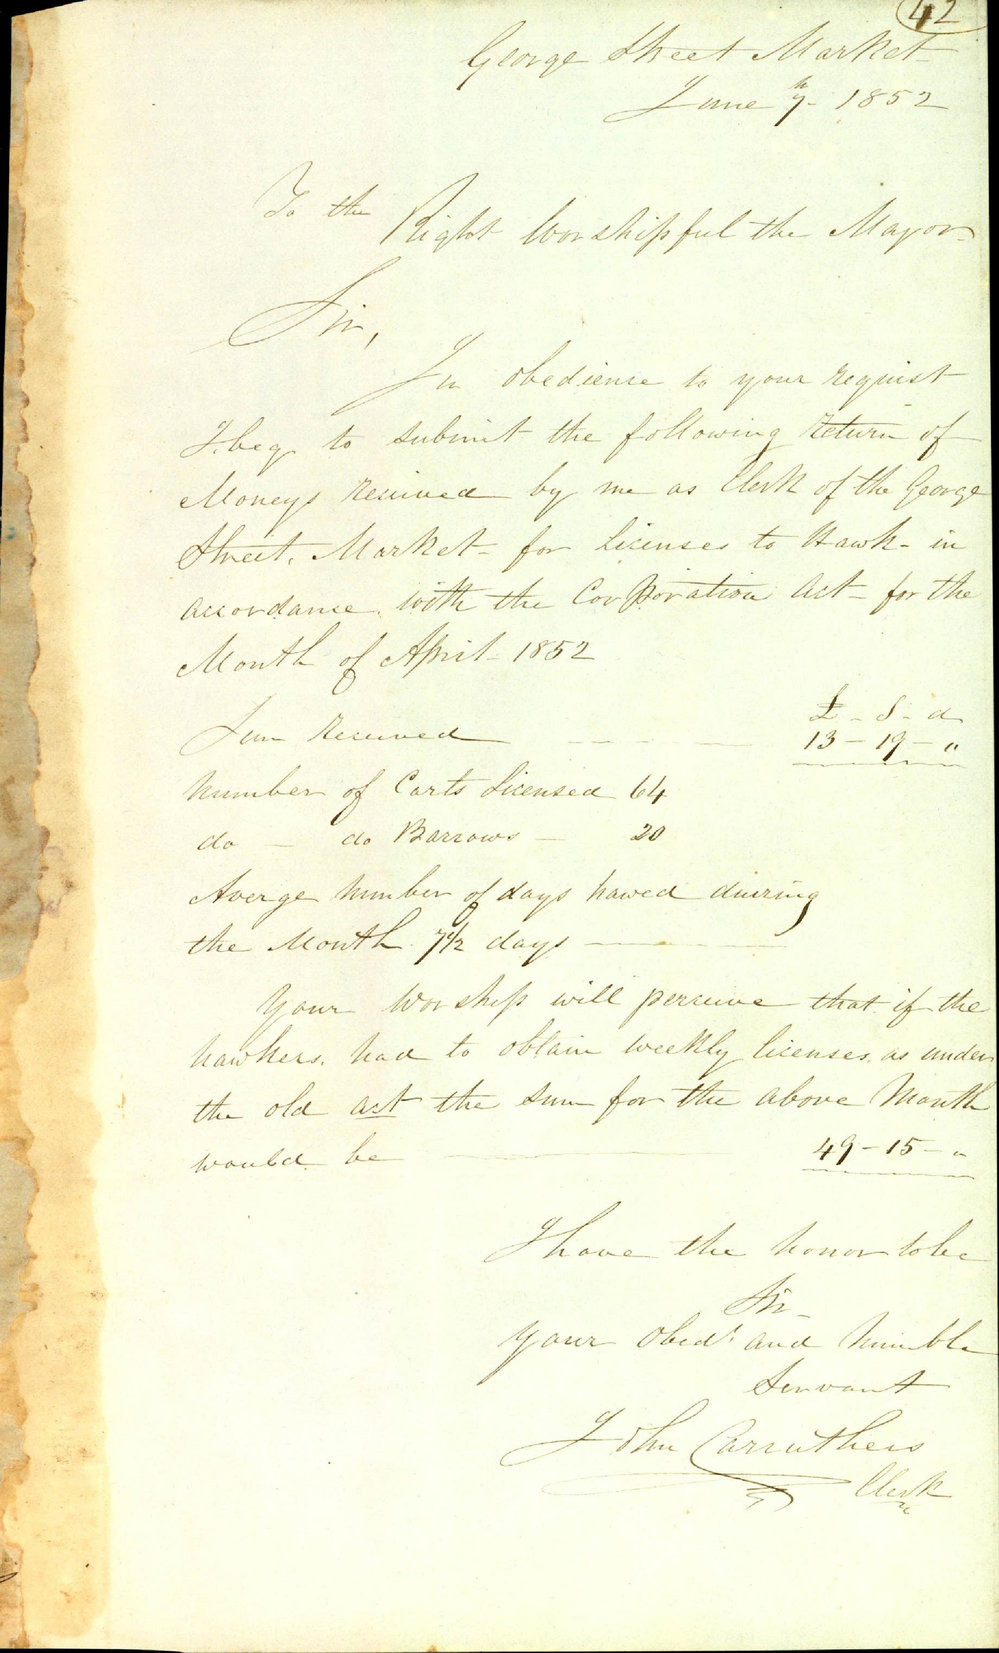 42
George Street Market
June 7th 1852
To the
Right Worshipful the Mayor
Sir,
In obedience to your request
I beg to submit the following return of
Moneys received by me as Clerk of the George
Street, Market for Licenses to Hawk in
accordance with the Corporation Act for the
Month of April 1852
£ - S - d
Sum received 13 - 19 - "
Number of Carts Licensed 64
do - do Barrows - 20
Averge number of days hawed duering
the Month 7 1/2 days
Your Worship will perceive that if the
hawkers, had to obtain weekly licenses as under
the old act the sum for the above Month
would be 49 - 15 - "
I have the honor to be
Sir
Your Obedt and humble
Servant
John Carruthers
Clerk